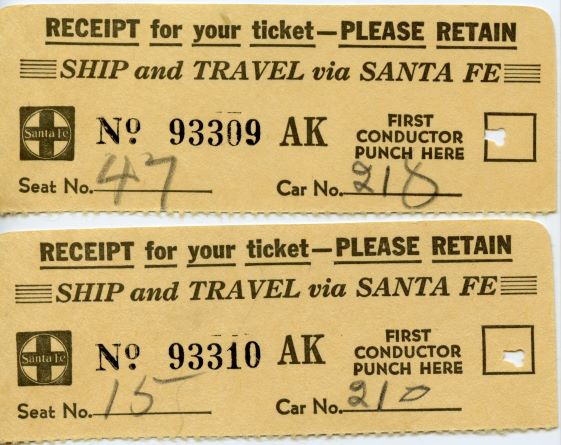 RECEIPT for your ticket—PLEASE RETAIN
SHIP and TRAVEL via SANTA FE
Santa Fe Nº 93309 AK FIRST CONDUCTOR PUNCH HERE
Seat No. 47 Car No. 218
RECEIPT for your ticket—PLEASE RETAIN
SHIP and TRAVEL via SANTA FE
Santa Fe Nº 93310 AK FIRST CONDUCTOR PUNCH HERE
Seat No. 15 Car No. 210